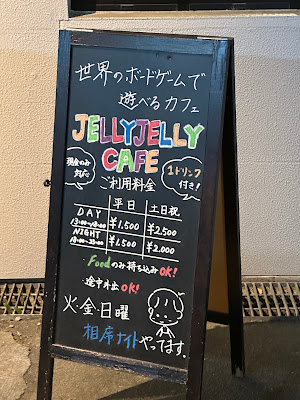 世界のボードゲームで
遊べるカフェ
JELLYJELLY
CAFE
現金のみ
対応
1ドリンク
付き!
ご利用料金
平日 土日祝
DAY
13:00~18:00 ¥1,500 ¥2,500
NIGHT
18:00~23:00 ¥1,500 ¥2,000
Foodのみ持ち込みOK!
途中外出OK!
火・金・日曜
相席ナイトやってます。